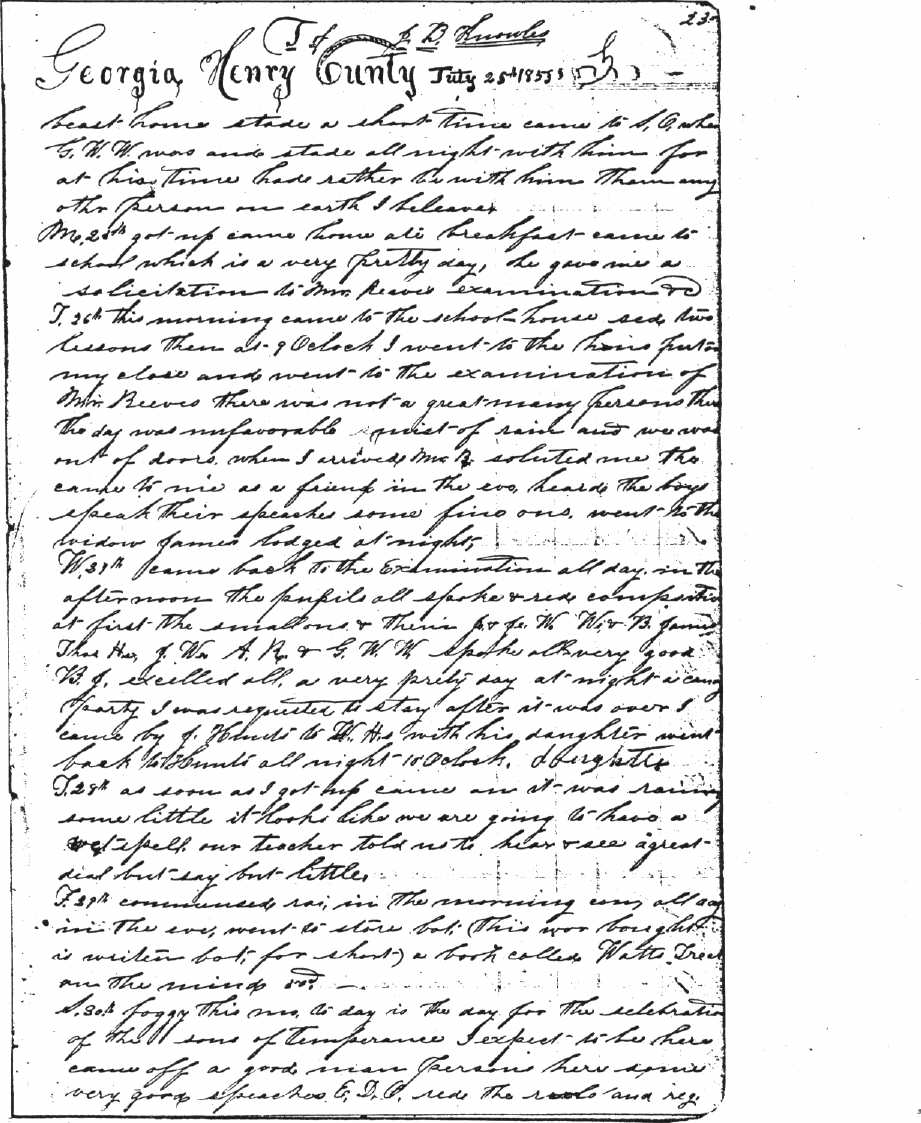 23
J of J. B. Knowles
Georgia, Henry Cunty July 25th 1853
beast home stade a short time came to S, O, when
G. W. W. was and stade all night with him for
at his time hade rether be with him tham any
othr person on earth I beleave
M, 25th got up came home ate breakfast came to
school which is a very pretty day, he gave me a
solicitation to Mr. Reaves examination &c
T. 26th this morning came to the school house sed two
lessons then at 9 Oclock I went to the hous put on
my close and went to the examination of
Mr. Reeves there was not a great many persons there
the day was unfavorable mist of rain and we was
out of doors. when I arrived Mr R. soluted me the
came to me as a friend in the eve, heard the boys
speak their speaches some fine ons. went to the
widow James lodged at night,
W. 27th came back to the Examination all day. in the
afternoon the pupils all spoke & red compositio
at first the small ons & then J. W. W. & B. James
Thos H., J. W. A. R. & G. W. W. spoke all very good
B. J. excelled all, a very prety day at night a cany
party I was requested to stay after it was over I
came by J. Hunts to W. H.s with his daughter went
back to Hunts all night 10 Oclock.
T. 28th as soon as I got up came on it was raining
some little it looks like we are going to have a
wet spell. our teacher told us to hear & see a great
deal but say but little.
F. 29th commensed rai, in the morning con, all day
in the eve, went to store bot, (this wor bought
is writen bot, for short) a book called Watts Treat
on the mind
S. 30th foggy this mo, to day is the day for the selebratio
of the sons of temperance I expect to be here
came off a good man persons here some
very good speaches E. D. C. red the rools and reg.